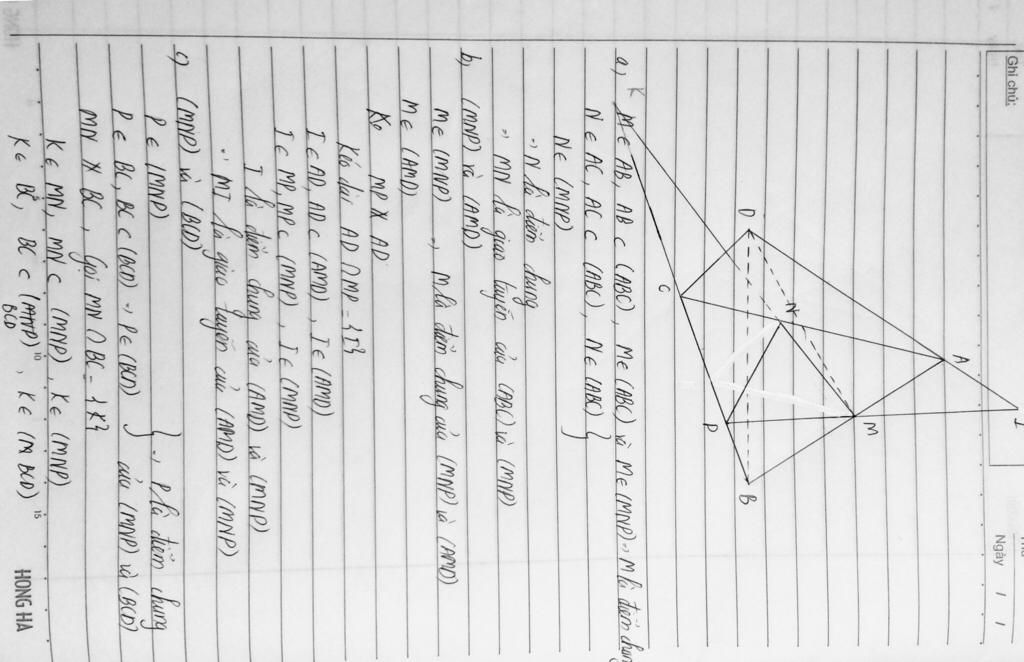 Ghi chú:
Ngày / /
I
A
D
N
M
C
P
B
K
a, M ∈ AB, AB ⊂ (ABC), M ∈ (ABC) và M ∈ (MNP) ⇒ M là điểm chung
N ∈ AC, AC ⊂ (ABC), N ∈ (ABC) }
N ∈ (MNP)
⇒ N là điểm chung
⇒ MN là giao tuyến của (ABC) và (MNP)
b, (MNP) và (AMD)
M ∈ (MNP) ⇒ M là điểm chung của (MNP) và (AMD)
M ∈ (AMD)
Kẻ MP ∦ AD
Kéo dài AD ∩ MP = {I}
I ∈ AD, AD ⊂ (AMD), I ∈ (AMD)
I ∈ MP, MP ⊂ (MNP), I ∈ (MNP)
I là điểm chung của (AMD) và (MNP)
⇒ MI là giao tuyến của (AMD) và (MNP)
c) (MNP) và (BCD)
P ∈ (MNP) } ⇒ P là điểm chung
P ∈ BC, BC ⊂ (BCD) ⇒ P ∈ (BCD) của (MNP) và (BCD)
MN ∦ BC, Gọi MN ∩ BC = {K}
K ∈ MN, MN ⊂ (MNP), K ∈ (MNP)
K ∈ BC, BC ⊂ (BCD), K ∈ (BCD)
10
15
HONG HA